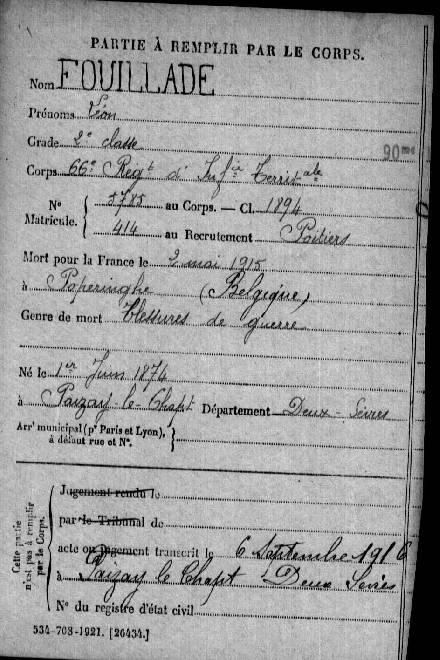 PARTIE À REMPLIR PAR LE CORPS.
Nom FOUILLADE
Prénoms Léon
Grade 2e classe
90me
Corps 66e Regt d' Infie Territale
No 5785 au Corps. — Cl. 1894
Matricule. 414 au Recrutement Poitiers
Mort pour la France le 2 mai 1915
à Poperinghe (Belgique)
Genre de mort blessures de guerre
Né le 1er Juin 1874
à Paizay-le-Chapt Département Deux-Sèvres
Arrt municipal (pr Paris et Lyon), à défaut rue et No.
Cette partie n'est pas à remplir par le Corps.
Jugement rendu le
par le Tribunal de
acte ou jugement transcrit le 6 Septembre 1916
à Paizay le Chapt Deux Sèvres
No du registre d'état civil
534-708-1921. [26434.]